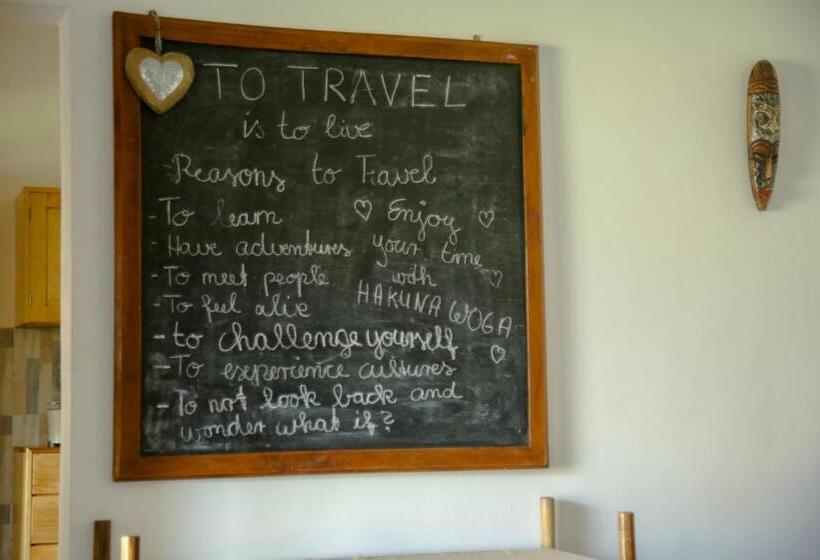 TO TRAVEL
is to live
Reasons to Travel
- To learn
- Have adventures
- To meet people
- To feel alive
♡ Enjoy ♡
your time
with ♡
HAKUNA WOGA
♡
- to challenge yourself
- To experience cultures
- To not look back and
wonder what if?